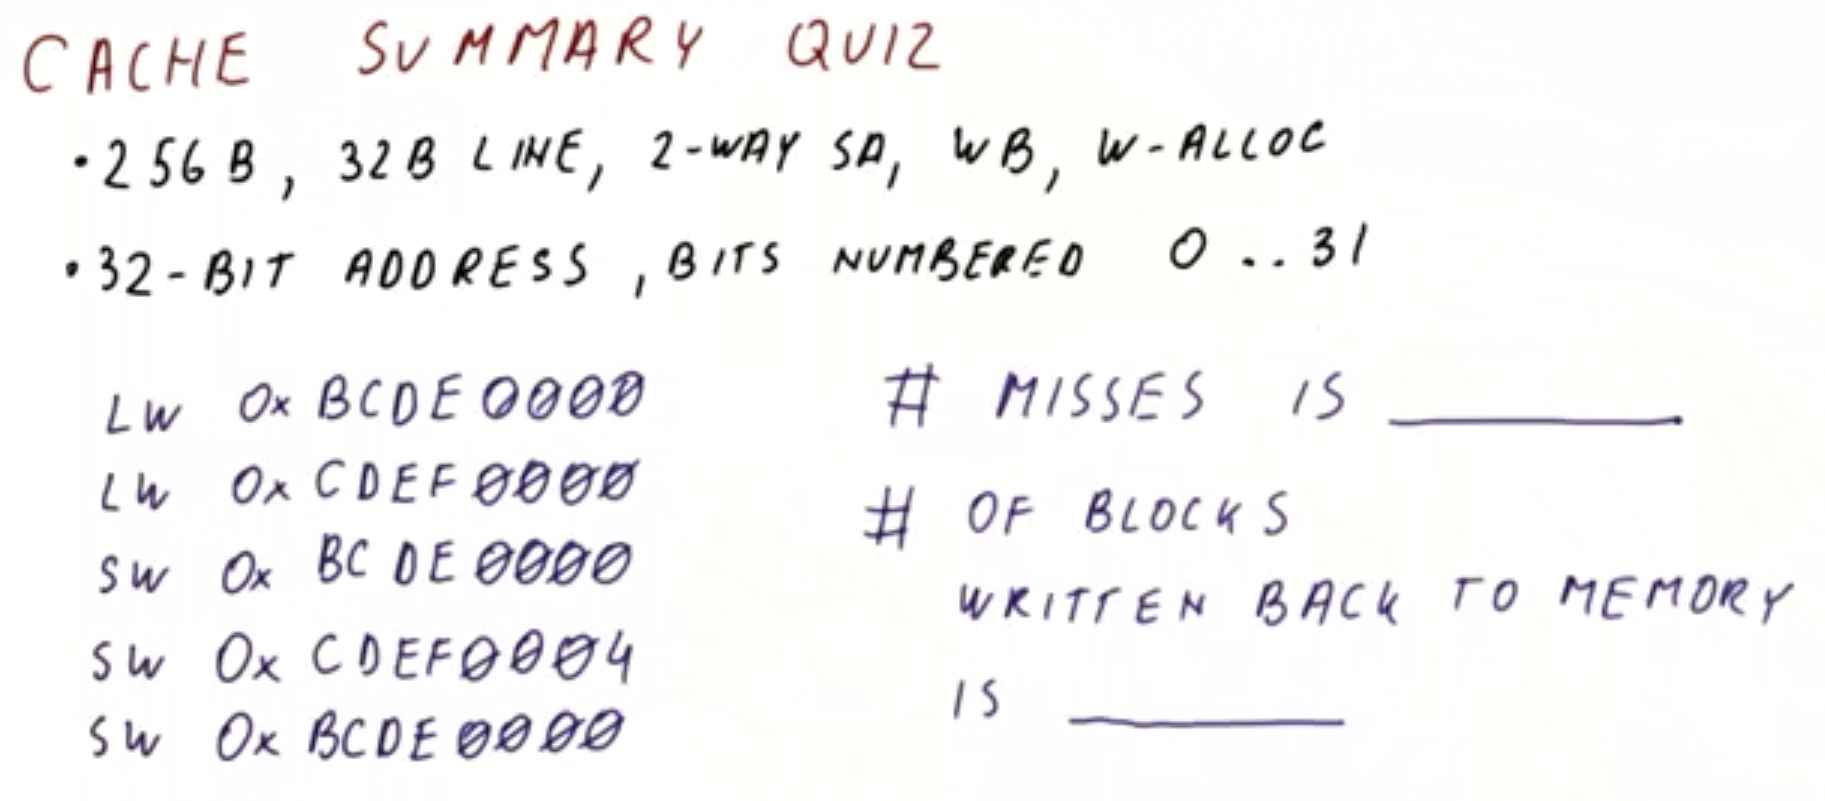 CACHE SUMMARY QUIZ
• 256B, 32B LINE, 2-WAY SA, WB, W-ALLOC
• 32-BIT ADDRESS, BITS NUMBERED 0..31
LW 0xBCDE0000
LW 0xCDEF0000
SW 0xBCDE0000
SW 0xCDEF0004
SW 0xBCDE0000
# MISSES IS ______
# OF BLOCKS
WRITTEN BACK TO MEMORY
IS ______